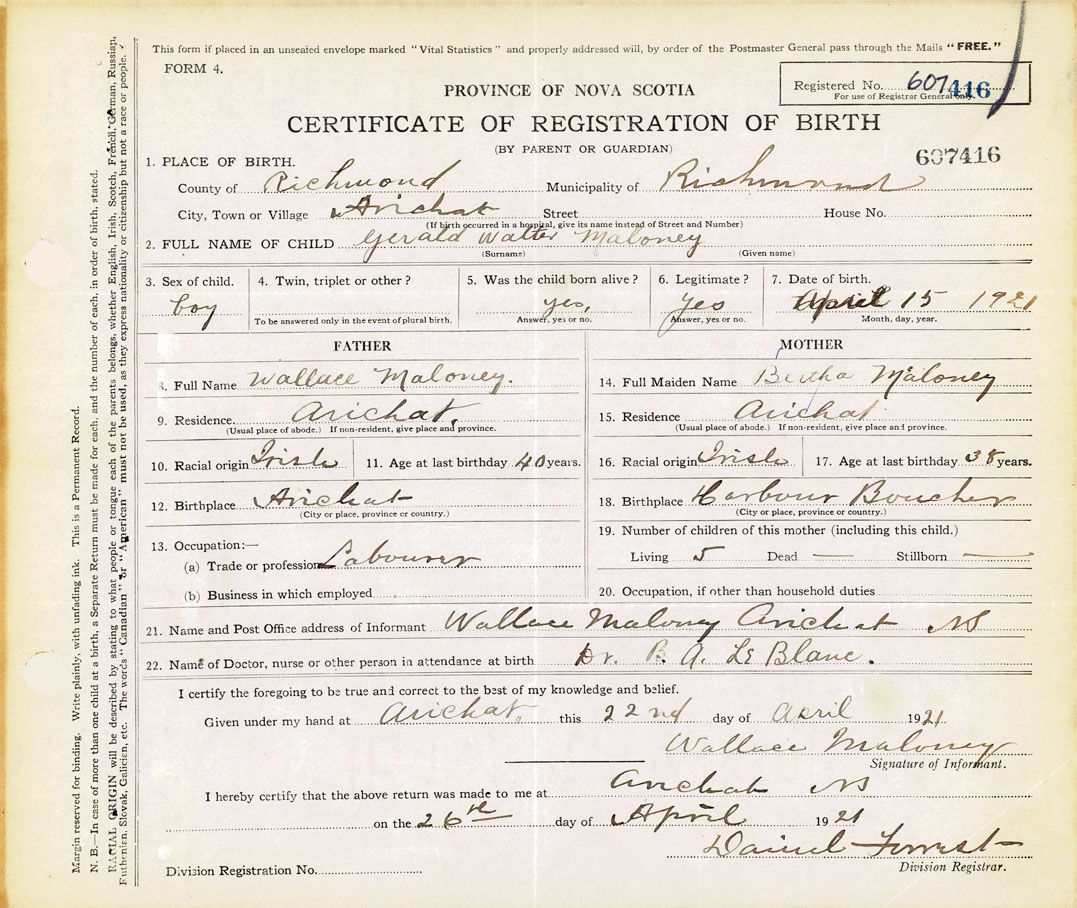 This form if placed in an unsealed envelope marked "Vital Statistics" and properly addressed will, by order of the Postmaster General pass through the Mails "FREE."
FORM 4.
Registered No. 607416
For use of Registrar General only.
PROVINCE OF NOVA SCOTIA
CERTIFICATE OF REGISTRATION OF BIRTH
(BY PARENT OR GUARDIAN)
607416
1. PLACE OF BIRTH.
County of Richmond Municipality of Richmond
City, Town or Village Arichat Street House No.
(If birth occurred in a hospital, give its name instead of Street and Number)
2. FULL NAME OF CHILD Gerald Walter Maloney
(Surname) (Given name)
3. Sex of child. 4. Twin, triplet or other? 5. Was the child born alive? 6. Legitimate? 7. Date of birth.
boy yes, yes April 15 1921
To be answered only in the event of plural birth. Answer, yes or no. Answer, yes or no. Month, day, year.
FATHER
8. Full Name Wallace Maloney.
9. Residence. Arichat.
(Usual place of abode.) If non-resident, give place and province.
10. Racial origin Irish 11. Age at last birthday 40 years.
12. Birthplace Arichat
(City or place, province or country.)
13. Occupation:—
(a) Trade or profession Labourer
(b) Business in which employed
MOTHER
14. Full Maiden Name Bertha Maloney
15. Residence Arichat
(Usual place of abode.) If non-resident, give place and province.
16. Racial origin Irish 17. Age at last birthday 38 years.
18. Birthplace Harbour Boucher
(City or place, province or country.)
19. Number of children of this mother (including this child.)
Living 5 Dead — Stillborn —
20. Occupation, if other than household duties
21. Name and Post Office address of Informant Wallace Maloney Arichat NS
22. Name of Doctor, nurse or other person in attendance at birth Dr. B. A. Le Blanc.
I certify the foregoing to be true and correct to the best of my knowledge and belief.
Given under my hand at Arichat, this 22nd day of April 1921.
Wallace Maloney
Signature of Informant.
I hereby certify that the above return was made to me at Arichat NS
on the 26th day of April 1921
Daniel Forrest
Division Registrar.
Division Registration No.
Margin reserved for binding. Write plainly, with unfading ink. This is a Permanent Record.
N. B.—In case of more than one child at a birth, a Separate Return must be made for each, and the number of each, in order of birth, stated.
RACIAL ORIGIN will be described by stating to what people or tongue each of the parents belongs, whether English, Irish, Scotch, French, German, Russian,
Ruthenian, Slovak, Galician, etc. The words "Canadian" or "American" must not be used, as they express nationality or citizenship but not a race or people.